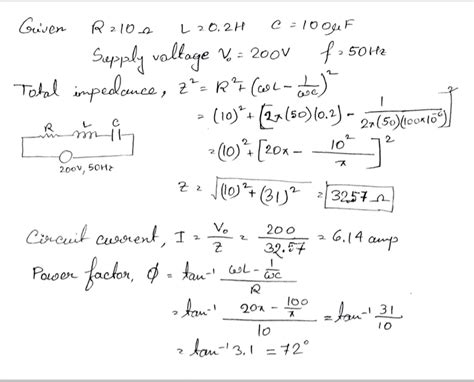 Given R = 10 Ω L = 0.2H C = 100μF
Supply voltage V₀ = 200V f = 50Hz
Total impedance, Z² = R² + (ωL - 1/ωC)²
= (10)² + [2π(50)(0.2) - 1/2π(50)(100×10⁻⁶)]²
R L C
= (10)² + [20π - 10²/π]²
200V, 50Hz
Z = √(10)² + (31)² = 32.57 Ω
Circuit current, I = V₀/Z = 200/32.57 = 6.14 amp
Power factor, φ = tan⁻¹ (ωL - 1/ωC)/R
= tan⁻¹ (20π - 100/π)/10 = tan⁻¹ 31/10
= tan⁻¹ 3.1 = 72°